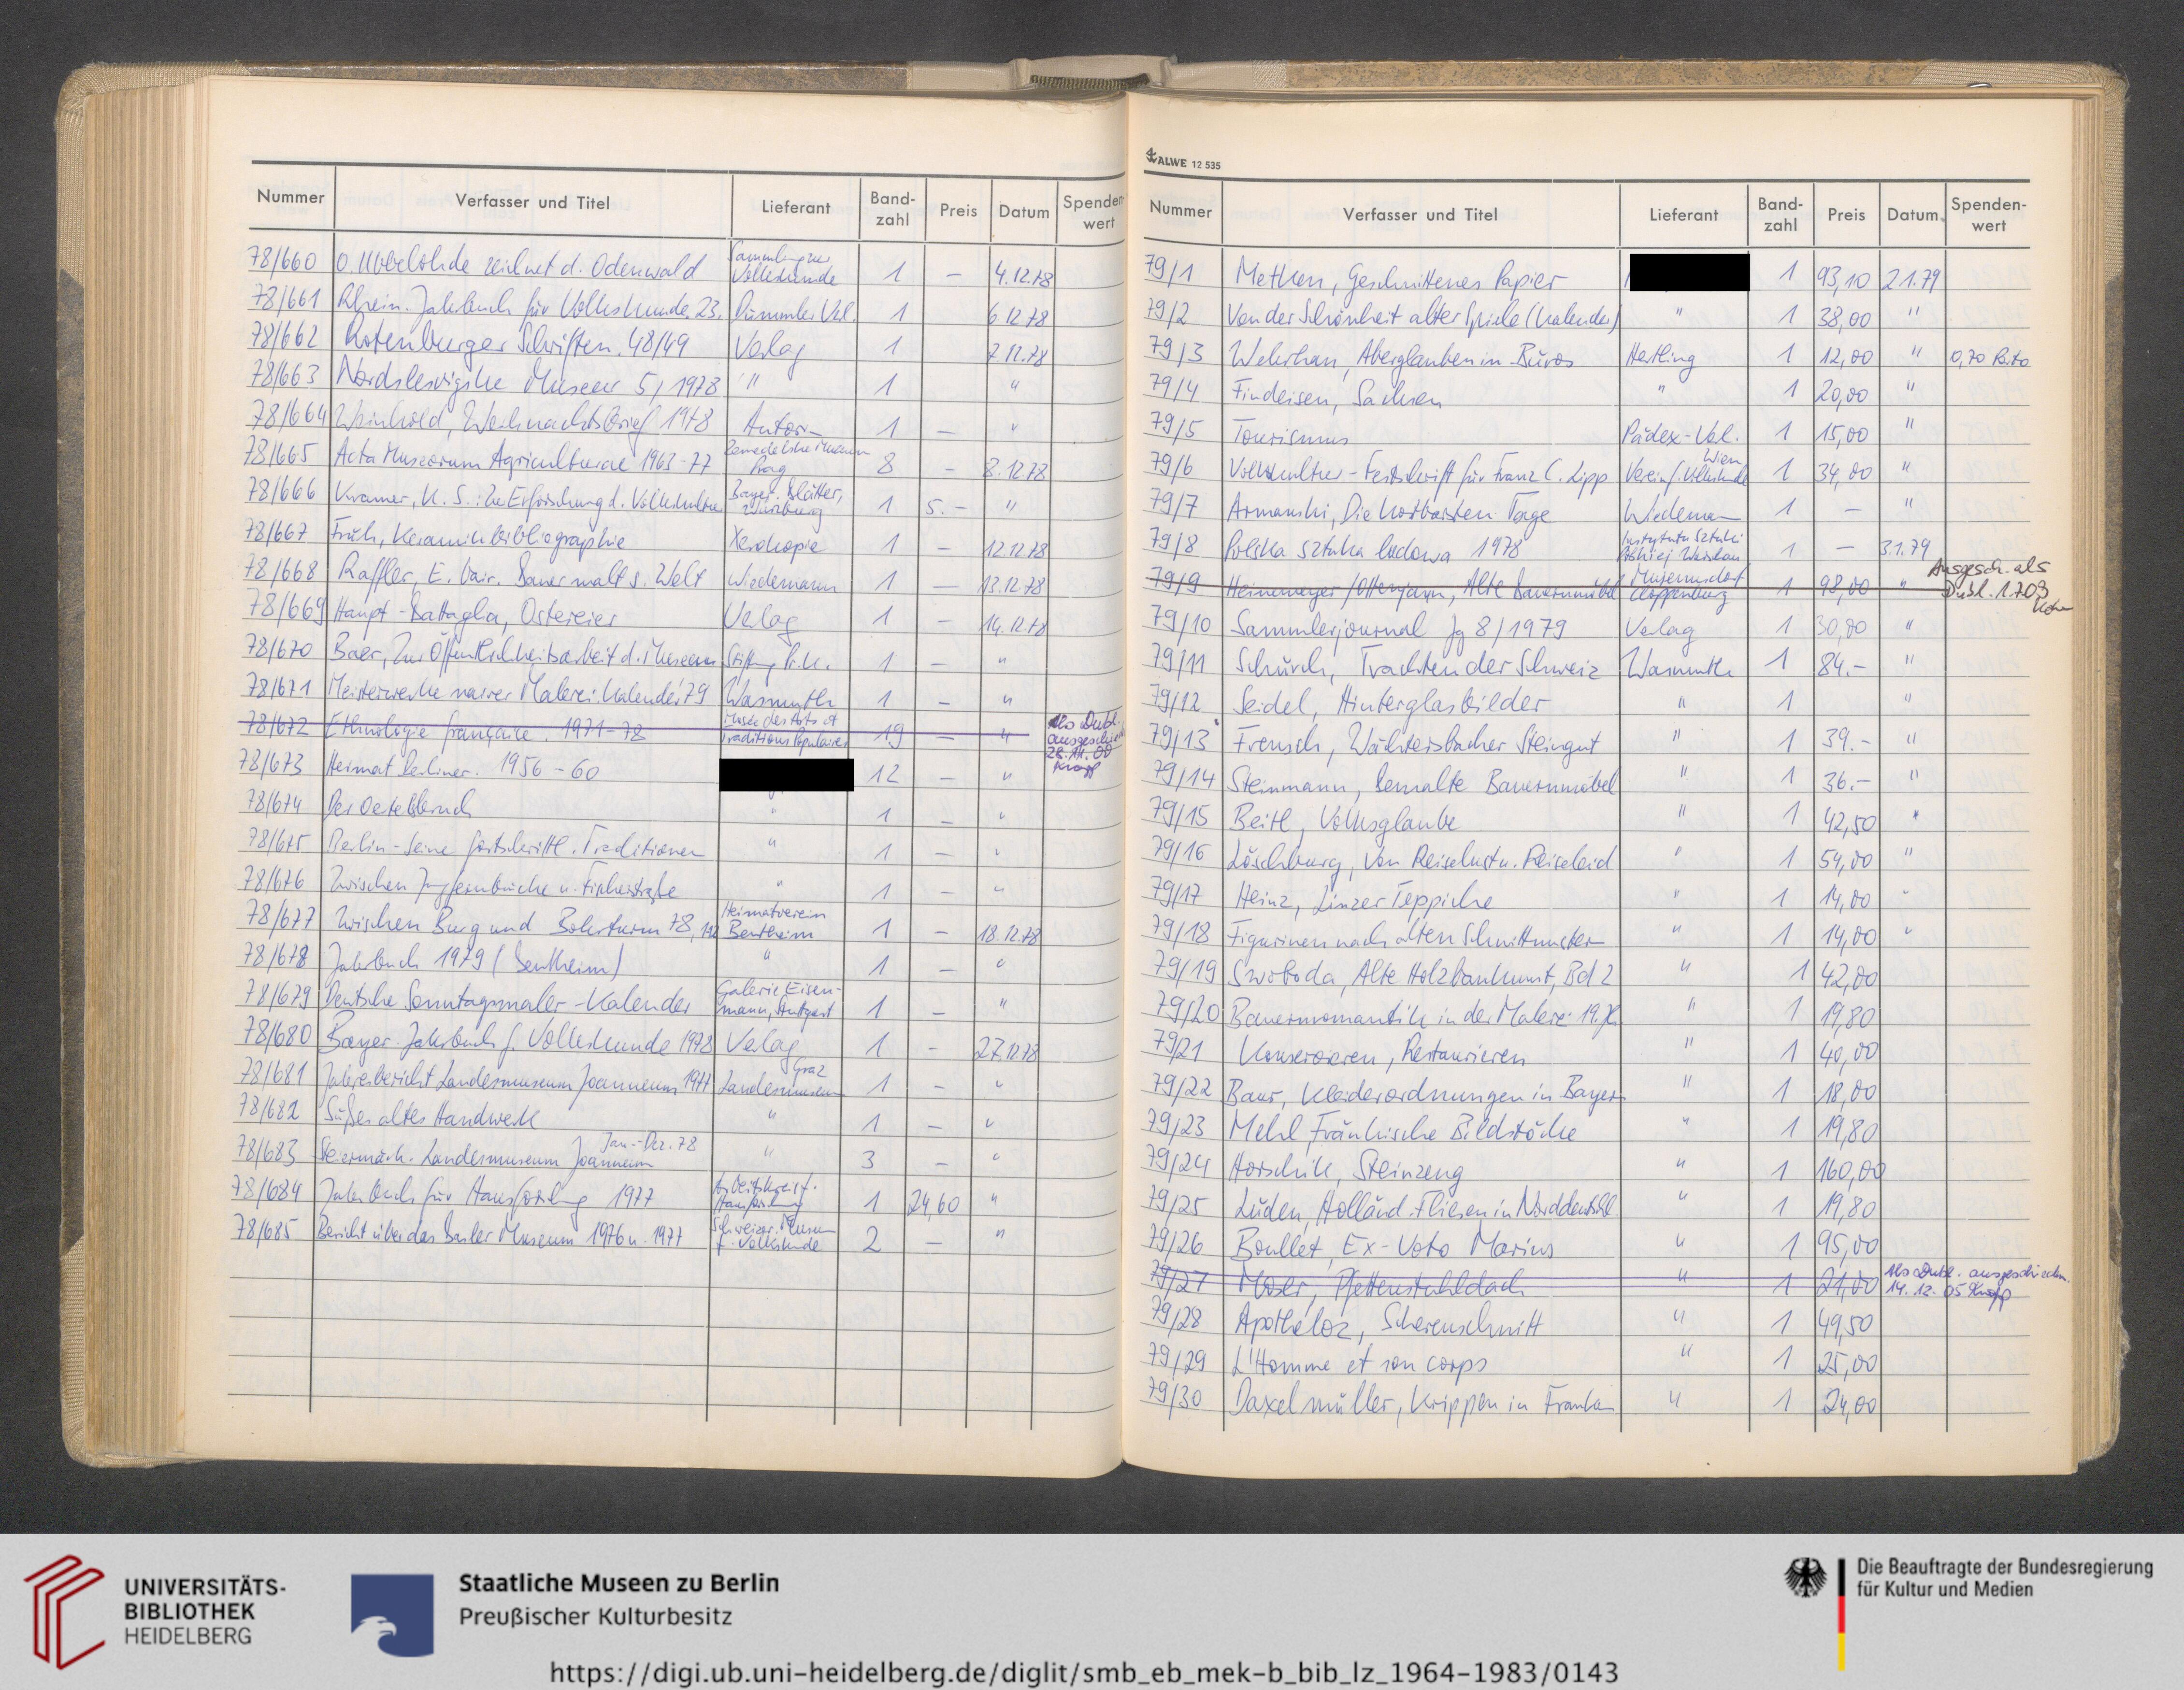 Nummer Verfasser und Titel Lieferant Band-zahl Preis Datum Spenden-wert
78/660 O. Ubbelohde zeichnet d. Odenwald Sammlung zur Volkskunde 1 — 4.12.78
78/661 Rhein. Jahrbuch für Volkskunde 23. Dümmler Verl. 1 6.12.78
78/662 Rotenburger Schriften. 48/49 Verlag 1 7.12.78
78/663 Nordslesvigske Museer 5, 1978 " 1 "
78/664 Weinhold, Weihnachtsbrief 1978 Autor 1 — "
78/665 Acta Museorum Agriculturae 1963-77 Prag 8 — 8.12.78
78/666 Kramer, K. S.: Zur Erforschung d. Volkskultur Bayer. Blätter, Würzburg 1 5.- "
78/667 Früh, Keramikbibliographie Xerokopie 1 — 12.12.78
78/668 Raffler, E. bair. Bauer malt s. Welt Wiedemann 1 — 13.12.78
78/669 Haupt-Battaglia, Ostereier Verlag 1 — 14.12.78
78/670 Baer, Zur Öffentlichkeitsarbeit d. Museen Stiftung Pr.K. 1 — "
78/671 Meisterwerke naiver Malerei: Kalender '79 Wasmuth 1 — "
78/672 Ethnologie française. 1971-78 Musée des Arts et Traditions Populaires 19 — " Als Dubl. ausgeschieden 28.11.00 Knopf
78/673 Heimat Berliner. 1956-60 12 — "
78/674 Der Oertelbruch " 1 — "
78/675 Berlin - seine fortschrittl. Traditionen " 1 — "
78/676 Zwischen Jungfernbrücke u. Fischerstraße " 1 — "
78/677 Zwischen Burg und Bohrturm 78, 1+2 Heimatverein Bentheim 1 — 18.12.78
78/678 Jahrbuch 1979 (Bentheim) " 1 — "
78/679 Deutsche Sonntagsmaler-Kalender Galerie Eisenmann, Stuttgart 1 — "
78/680 Bayer. Jahrbuch f. Volkskunde 1978 Verlag 1 - 27.12.78
78/681 Jahresbericht Landesmuseum Joanneum 1977 Landesmuseum Graz 1 - "
78/682 Süßes altes Handwerk " 1 — "
78/683 Steiermärk. Landesmuseum Joanneum Jan.-Dez. 78 " 3 — "
78/684 Jahrbuch für Hausforschung 1977 Arbeitskreis f. Hausforschung 1 24,60 "
78/685 Bericht über das Basler Museum 1976 u. 1977 Schweizer. Museum f. Volkskunde 2 — "
ALWE 12 535
Nummer Verfasser und Titel Lieferant Band-zahl Preis Datum Spenden-wert
79/1 Metken, Geschnittenes Papier 1 93,10 2.1.79
79/2 Von der Schönheit alter Spiele (Kalender) " 1 38,00 "
79/3 Wehrhan, Aberglauben in Büros Hertling 1 12,00 " 0,70 Porto
79/4 Findeisen, Sachsen " 1 20,00 "
79/5 Tourismus Pädex-Verl. 1 15,00 "
79/6 Volkskultur - Festschrift für Franz C. Lipp Verein f. Volkskunde Wien 1 34,00 "
79/7 Armanski, Die kostbarsten Tage Wiedemann 1 — "
79/8 Polska sztuka ludowa 1978 Instytutu Sztuki 1 — 3.1.79
79/9 Heinemeyer/Ottenjann, Alte Bauernmöbel Museumsdorf Cloppenburg 1 98,00 " Ausgesch. als Dubl. 1.7.03
79/10 Sammlerjournal Jg 8/1979 Verlag 1 30,00 "
79/11 Schürch, Trachten der Schweiz Wasmuth 1 84.- "
79/12 Seidel, Hinterglasbilder " 1 "
79/13 Frensch, Wächtersbacher Steingut " 1 39.- "
79/14 Steinmann, Bemalte Bauernmöbel " 1 36.- "
79/15 Beitl, Volksglaube " 1 42,50 "
79/16 Löschburg, Von Reiselust u. Reiseleid " 1 54,00 "
79/17 Heinz, Linzer Teppiche " 1 14,00 "
79/18 Figurinen nach alten Schnittmustern " 1 14,00 "
79/19 Swoboda, Alte Holzbaukunst, Bd 2 " 1 42,00
79/20 Bauernromantik in der Malerei 19. Jh. " 1 19,80
79/21 Konservieren, Restaurieren " 1 40,00
79/22 Baur, Kleiderordnungen in Bayern " 1 18,00
79/23 Mehl Fränkische Bildstöcke " 1 19,80
79/24 Horschik, Steinzeug " 1 160,00
79/25 Lüden, Holländ. Fliesen in Norddeutschl. " 1 19,80
79/26 Boullet, Ex-Voto Marins " 1 95,00
79/27 Moser, Pfettenstuhldach " 1 21,00 Als Dubl. ausgeschieden. 14.12.05 Knopf
79/28 Apothéloz, Scherenschnitt " 1 49,50
79/29 L'Homme et son corps " 1 25,00
79/30 Daxelmüller, Krippen in Franken " 1 24,00
UNIVERSITÄTS-
BIBLIOTHEK
HEIDELBERG
Staatliche Museen zu Berlin
Preußischer Kulturbesitz
Die Beauftragte der Bundesregierung
für Kultur und Medien
https://digi.ub.uni-heidelberg.de/diglit/smb_eb_mek-b_bib_lz_1964-1983/0143